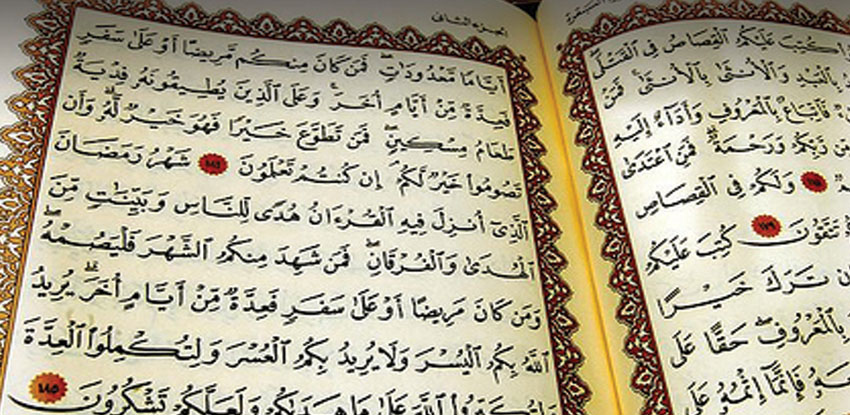 كُتِبَ عَلَيْكُمُ الْقِصَاصُ فِي الْقَتْلَى
بِالْعَبْدِ وَالْأُنثَىٰ بِالْأُنثَىٰ ۚ فَمَنْ
فَاتِّبَاعٌ بِالْمَعْرُوفِ وَأَدَاءٌ إِلَيْهِ
مِّن رَّبِّكُمْ وَرَحْمَةٌ ۗ فَمَنِ اعْتَدَىٰ
١٧٨ وَلَكُمْ فِي الْقِصَاصِ
تَتَّقُونَ ١٧٩ كُتِبَ عَلَيْكُمْ
تَرَكَ خَيْرًا
بِالْمَعْرُوفِ ۖ حَقًّا عَلَى
فَإِنَّمَا إِثْمُهُ عَلَى
الجزء الثاني
أَيَّامًا مَّعْدُودَاتٍ ۚ فَمَن كَانَ مِنكُم مَّرِيضًا أَوْ عَلَىٰ سَفَرٍ
فَعِدَّةٌ مِّنْ أَيَّامٍ أُخَرَ ۚ وَعَلَى الَّذِينَ يُطِيقُونَهُ فِدْيَةٌ
طَعَامُ مِسْكِينٍ ۖ فَمَن تَطَوَّعَ خَيْرًا فَهُوَ خَيْرٌ لَّهُ ۚ وَأَن
تَصُومُوا خَيْرٌ لَّكُمْ ۖ إِن كُنتُمْ تَعْلَمُونَ ١٨٤ شَهْرُ رَمَضَانَ
الَّذِي أُنزِلَ فِيهِ الْقُرْءَانُ هُدًى لِّلنَّاسِ وَبَيِّنَاتٍ مِّنَ
الْهُدَىٰ وَالْفُرْقَانِ ۚ فَمَن شَهِدَ مِنكُمُ الشَّهْرَ فَلْيَصُمْهُ ۖ
وَمَن كَانَ مَرِيضًا أَوْ عَلَىٰ سَفَرٍ فَعِدَّةٌ مِّنْ أَيَّامٍ أُخَرَ ۗ يُرِيدُ
اللَّهُ بِكُمُ الْيُسْرَ وَلَا يُرِيدُ بِكُمُ الْعُسْرَ وَلِتُكْمِلُوا الْعِدَّةَ
وَلِتُكَبِّرُوا اللَّهَ عَلَىٰ مَا هَدَاكُمْ وَلَعَلَّكُمْ تَشْكُرُونَ ١٨٥